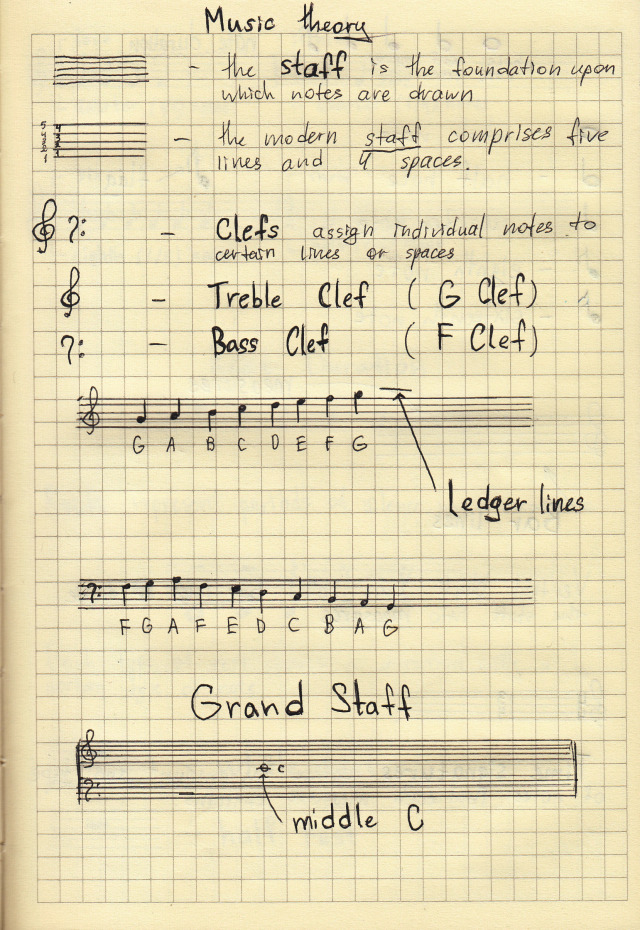 Music theory
- the staff is the foundation upon
which notes are drawn
- the modern staff comprises five
lines and 4 spaces.
- Clefs assign individual notes to
certain lines or spaces
- Treble Clef ( G Clef)
- Bass Clef ( F Clef)
G A B C D E F G
Ledger lines
F G A F E D C B A G
Grand Staff
C
middle C